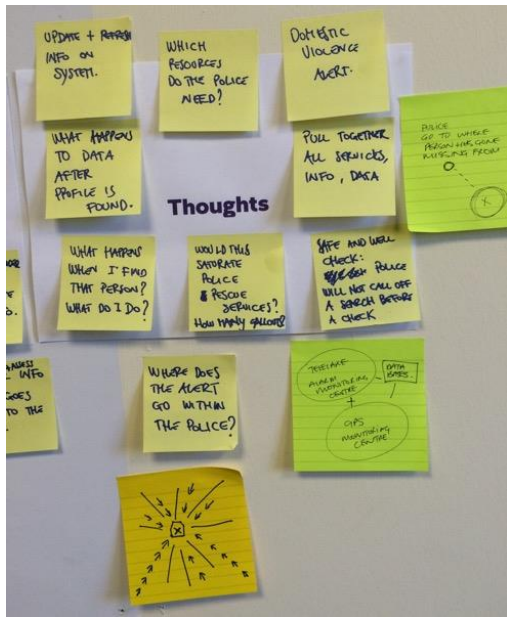 UPDATE + REFRESH
INFO ON
SYSTEM.
WHICH
RESOURCES
DO THE POLICE
NEED?
DOMESTIC
VIOLENCE
ALERT.
WHAT HAPPENS
TO DATA
AFTER
PROFILE IS
FOUND.
Thoughts
PULL TOGETHER
ALL SERVICES,
INFO, DATA
POLICE
GO TO WHERE
PERSON HAS GONE
MISSING FROM
X
WHAT HAPPENS
WHEN I FIND
THAT PERSON?
WHAT DO I DO?
WOULD THIS
SATURATE
POLICE
RESCUE
SERVICES?
HOW MANY CALLOUTS?
SAFE AND WELL
CHECK:
POLICE
WILL NOT CALL OFF
A SEARCH BEFORE
A CHECK
INFO
GOES
TO THE
WHERE DOES
THE ALERT
GO WITHIN
THE POLICE?
TELECARE
ALARM
MONITORING
CENTRE
+
DATA
BASES.
GPS
MONITORING
CENTRE
X